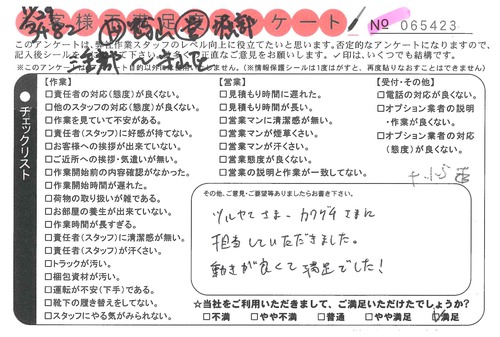 お客様満足度アンケート
No 065423
このアンケートは、弊社作業スタッフのレベル向上に役立てたいと思います。否定的なアンケートになりますので、
記入後シールを
正直なご意見をお願いします。✓印は、いくつでも結構です。
※このアンケートは
目的以外
しません。(※情報保護シールは1度はがすと、再度貼りなおすことはできません)
チェックリスト
【作業】
□責任者の対応(態度)が良くない。
□他のスタッフの対応(態度)が良くない。
□作業を見ていて不安がある。
□責任者(スタッフ)に好感が持てない。
□お客様への挨拶が出来ていない。
□ご近所への挨拶・気遣いが無い。
□作業開始前の内容確認がなかった。
□作業開始時間が遅れた。
□荷物の取り扱いが雑である。
□お部屋の養生が出来ていない。
□作業時間が長すぎる。
□責任者(スタッフ)に清潔感が無い。
□責任者(スタッフ)が汗くさい。
□トラックが汚い。
□梱包資材が汚い。
□運転が不安(下手)である。
□靴下の履き替えをしてない。
□スタッフにやる気がみられない。
【営業】
□見積もり時間に遅れた。
□見積もり時間が長い。
□営業マンに清潔感が無い。
□営業マンが煙草くさい。
□営業マンが汗くさい。
□営業態度が良くない。
□営業の説明と作業が一致してない。
【受付・その他】
□電話の対応が良くない。
□オプション業者の説明
・作業が良くない。
□オプション業者の対応
(態度)が良くない。
その他、ご意見・ご要望等ありましたらお書き下さい。
ツルヤマさま、カワグチさまに
担当していただきました。
動きが良くて満足でした!
☆当社をご利用いただきまして、ご満足いただけたでしょうか?
□不満 □やや不満 □普通 □やや満足 ☑満足